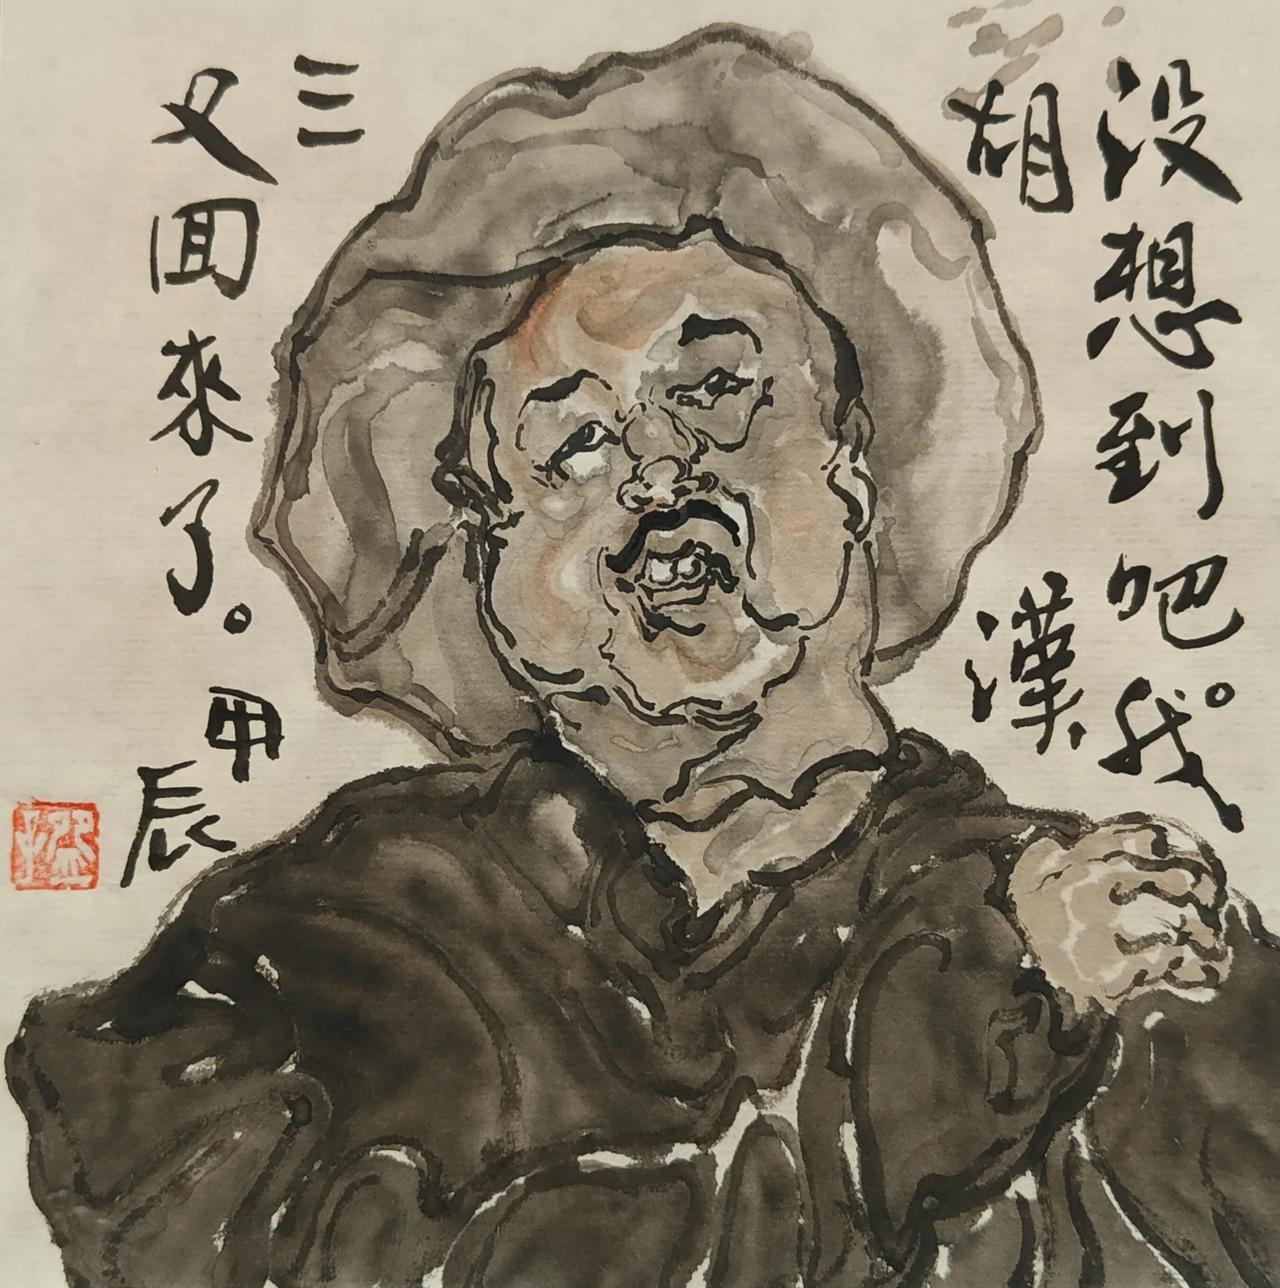 没想到吧。我
胡漢
三
又回來了。
甲辰